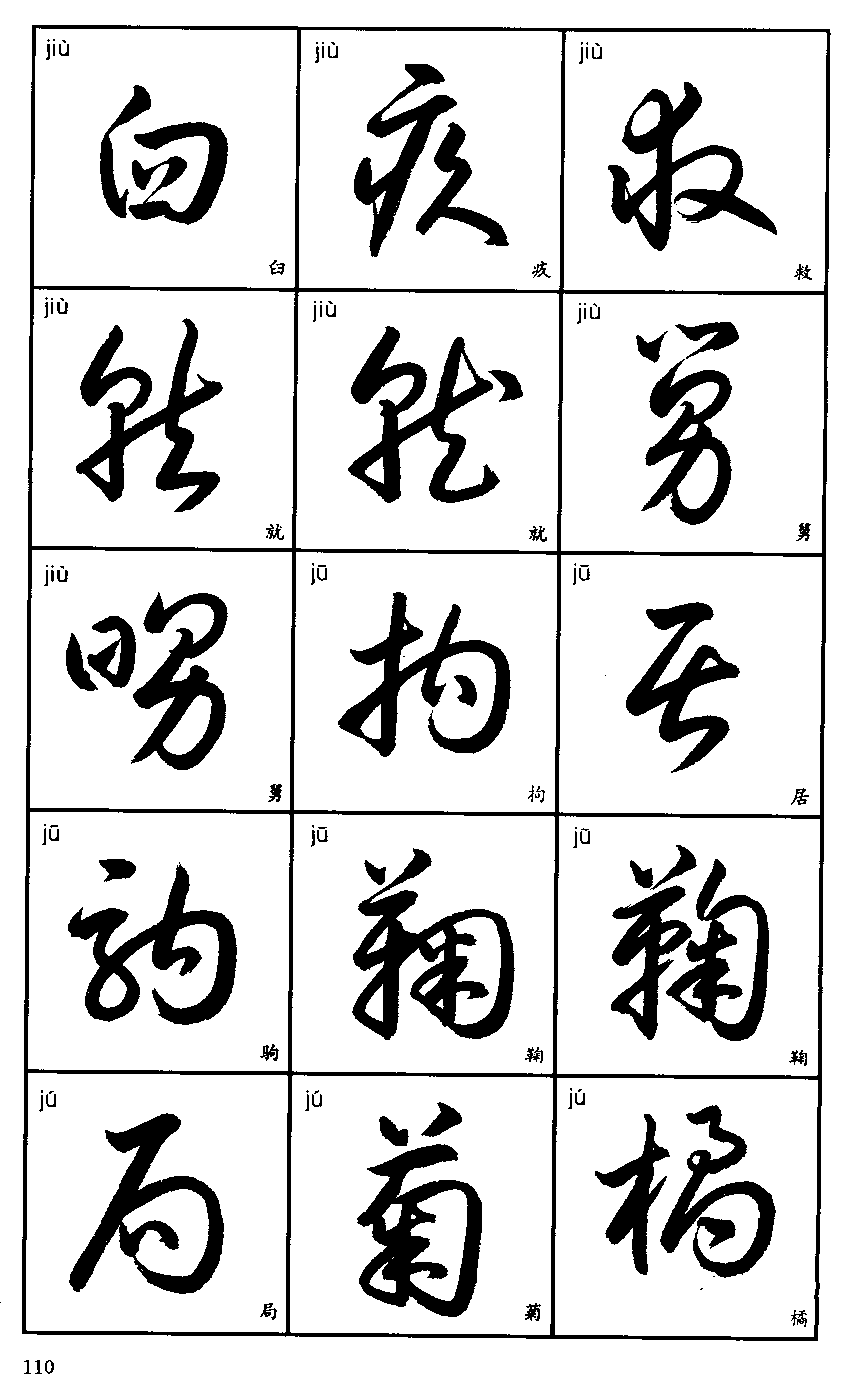 jiù jiù jiù
臼 疚 救
臼 疚 救
jiù jiù jiù
就 就 舅
就 就 舅
jiù jū jū
舅 拘 居
舅 拘 居
jū jū jū
驹 鞠 鞠
驹 鞠 鞠
jú jú jú
局 菊 橘
局 菊 橘
110